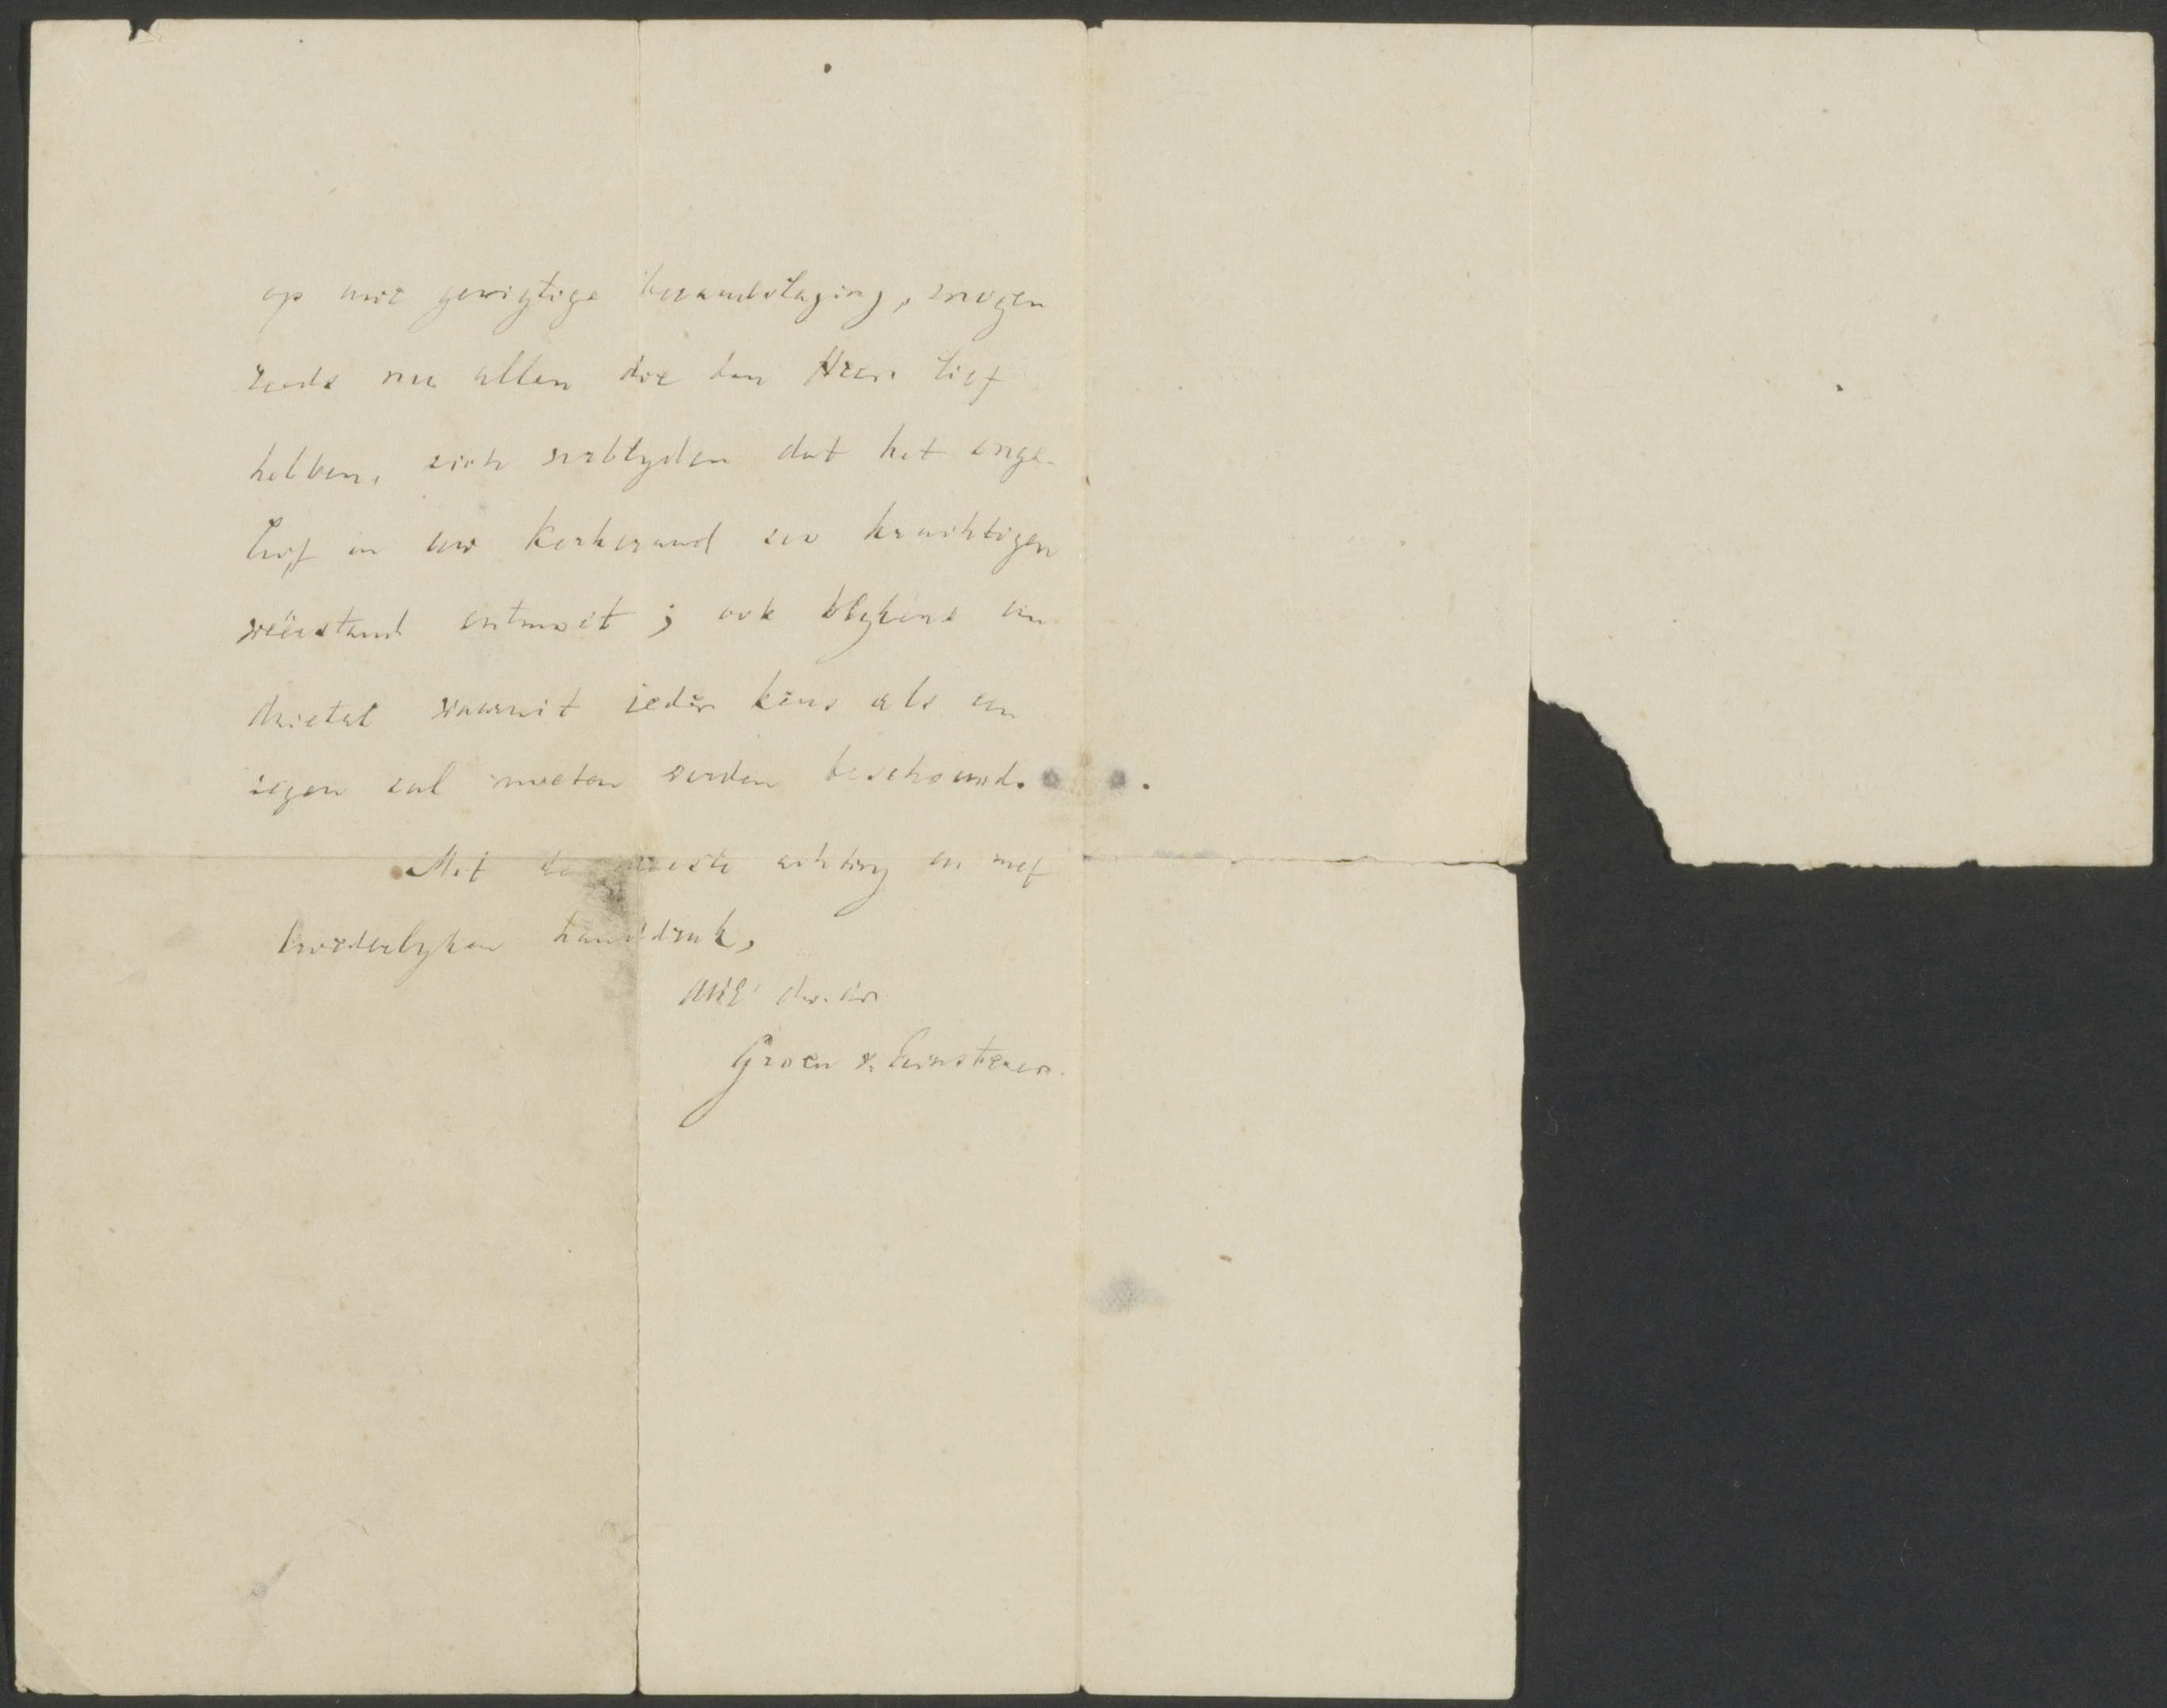 op uwe gewigtige beraadslaging, mogen
reeds nu allen die den Heer lief
hebben, zich verblyden dat het onge-
loof in uw Kerkeraad zoo krachtigen
weêrstand ontmoet; ook blykens een
drietal waaruit ieder keus als een
zegen zal moeten worden beschouwd.
Met de meeste achting en met
broederlyken handdruk,
UWE dw. dr.
Groen v. Prinsterer.